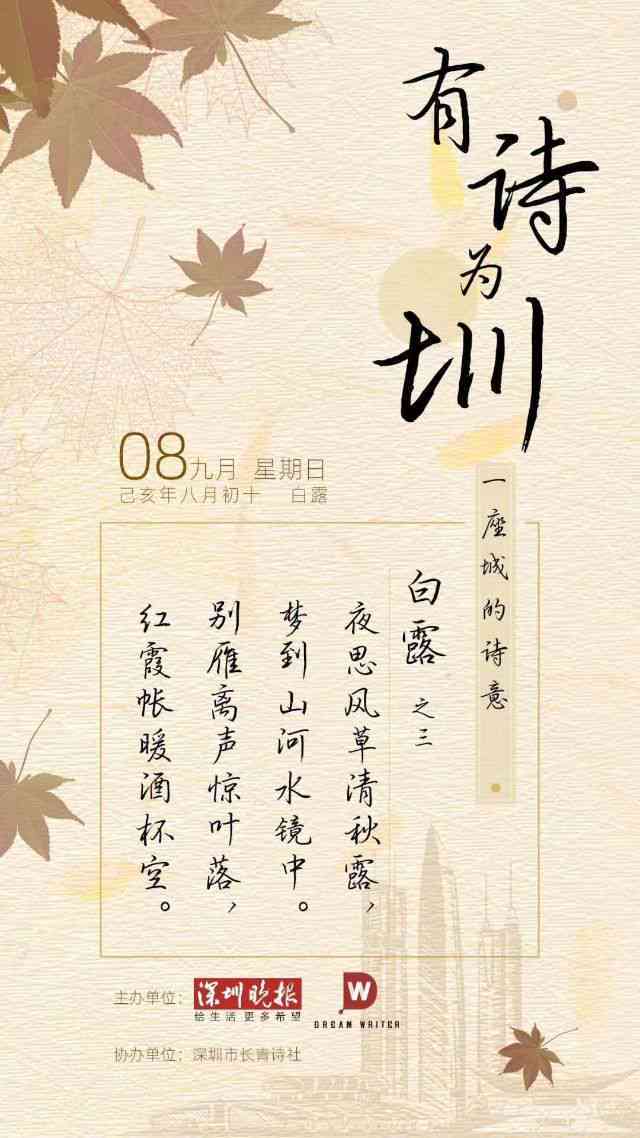 有诗为圳
一座城的诗意
08九月 星期日
己亥年八月初十 白露
白露 之三
夜思风草清秋露，
梦到山河水镜中。
别雁离声惊叶落，
红霞帐暖酒杯空。
主办单位：
深圳晚报
给生活更多希望
DW
DREAM WRITER
协办单位：深圳市长青诗社